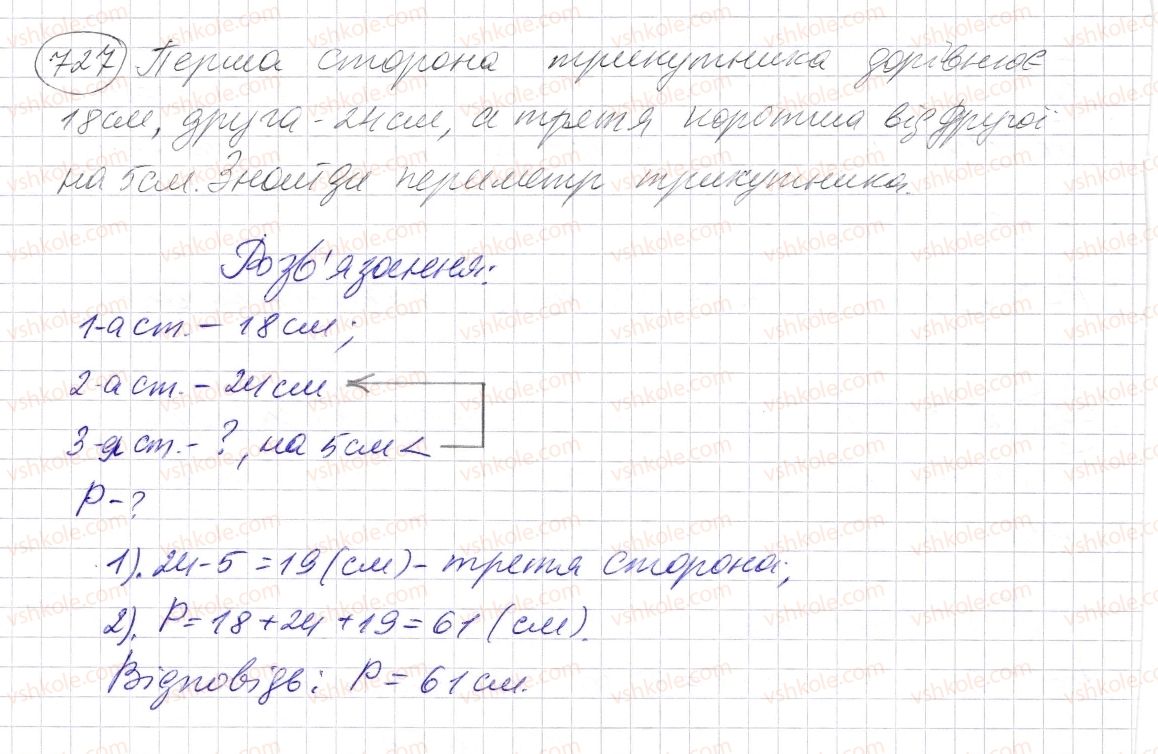 727 Перша сторона трикутника дорівнює
18см, друга - 24см, а третя коротша від другої
на 5см. Знайди периметр трикутника.
Розв'язання:
1-а ст. – 18см;
2-а ст. – 24см
3-я ст. - ?, на 5см <
P - ?
1). 24-5=19(см)- третя сторона;
2). P=18+24+19=61(см).
Відповідь: P=61см.